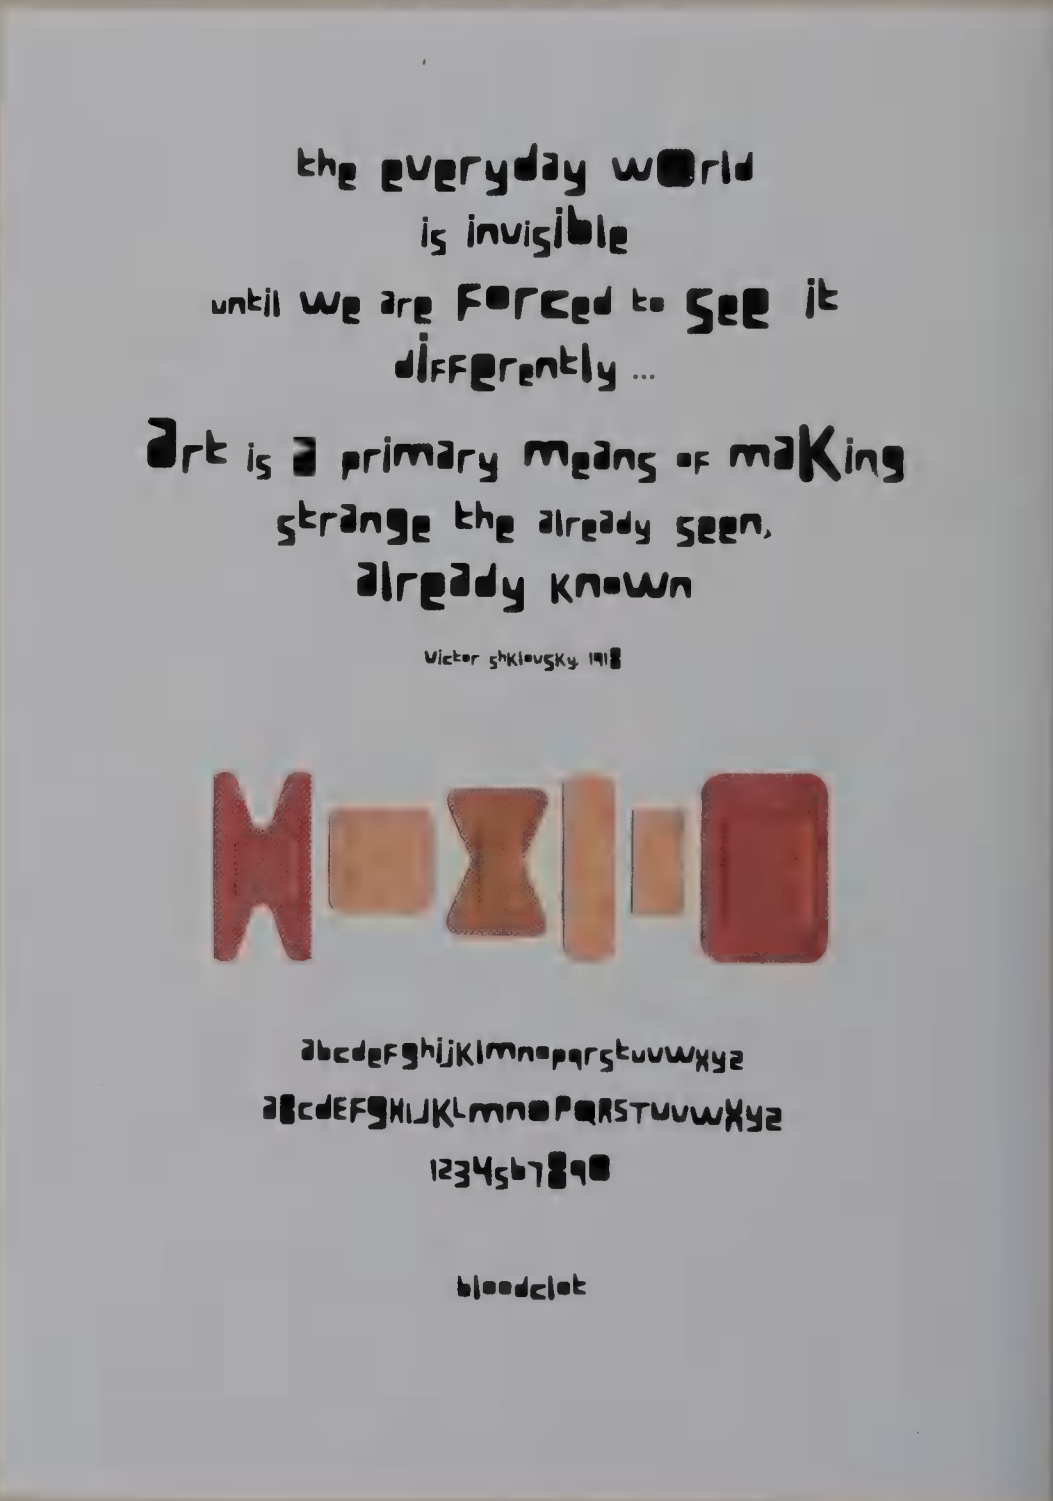 the everyday world
is invisible
until we are forced to see it
differently ...
art is a primary means of making
strange the already seen,
already known
Victor shklovsky, 1918
abcdefghijklmnopqrstuvwxyz
aBcdEFgHiJKLmnoPQRSTUvwXyz
1234567890
bloodclot